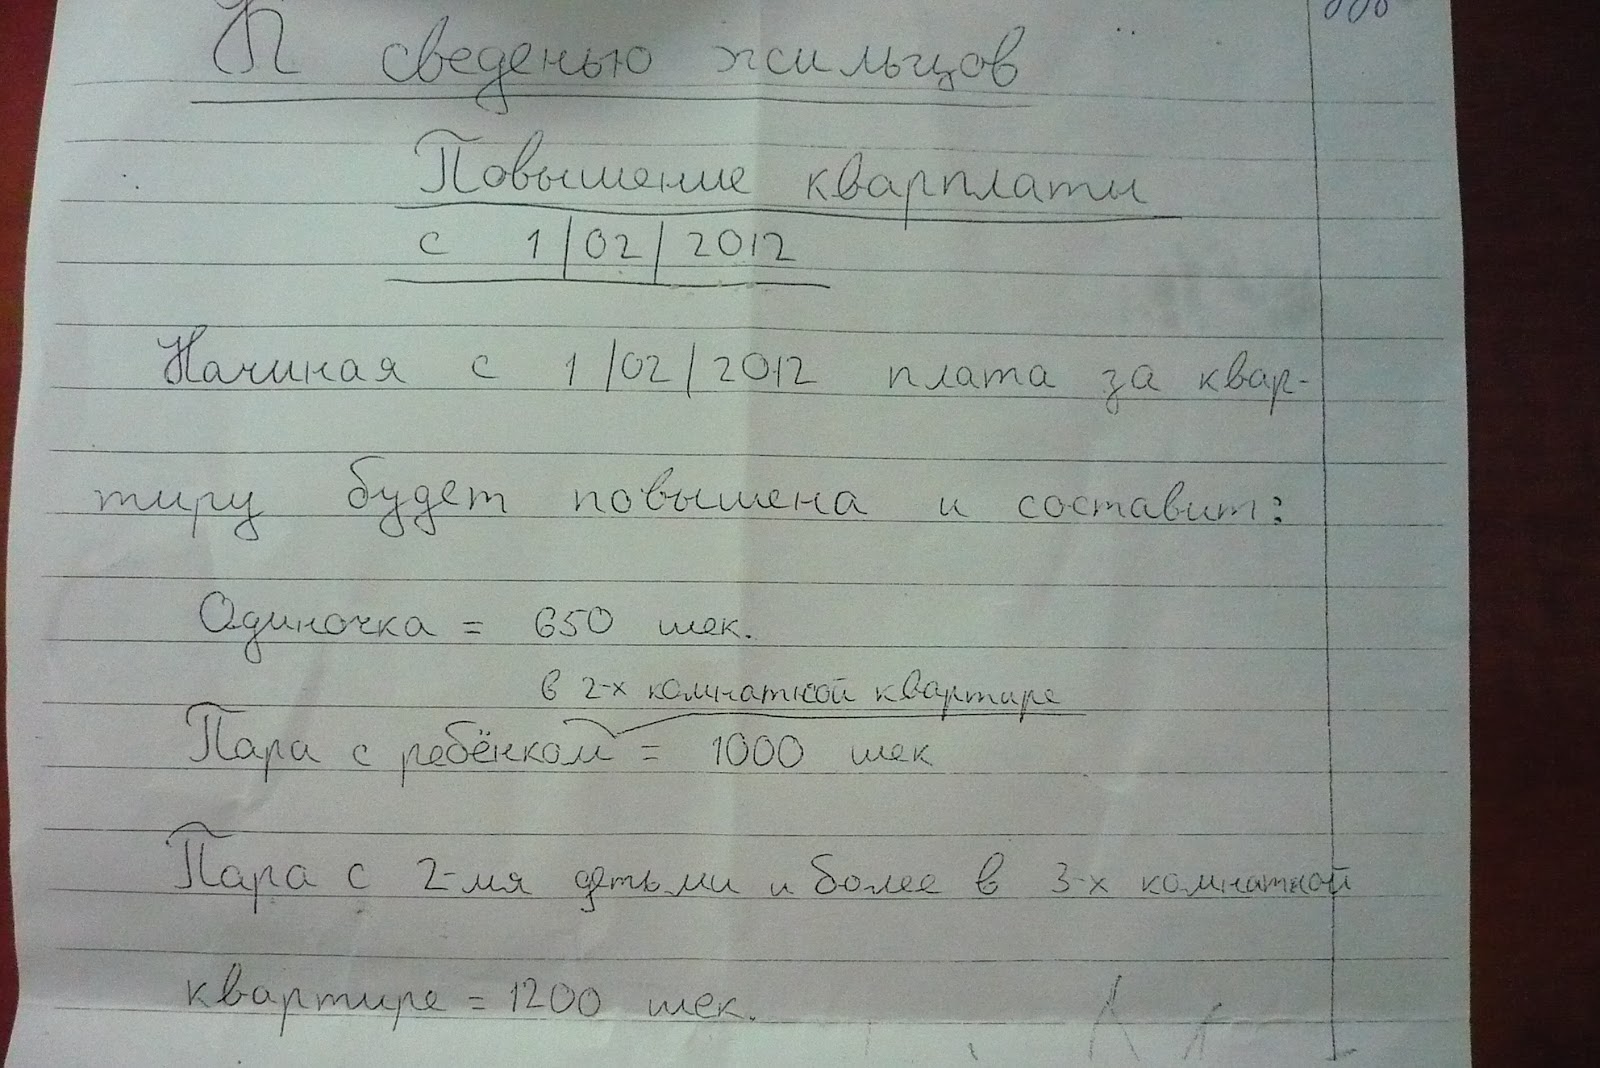 К сведенью жильцов
Повышение кварплаты
с 1/02/2012
Начиная с 1/02/2012 плата за квар-
тиру будет повышена и составит:
Одиночка = 650 шек.
в 2-х комнатной квартире
Пара с ребёнком = 1000 шек
Пара с 2-мя детьми и более в 3-х комнатной
квартире = 1200 шек.